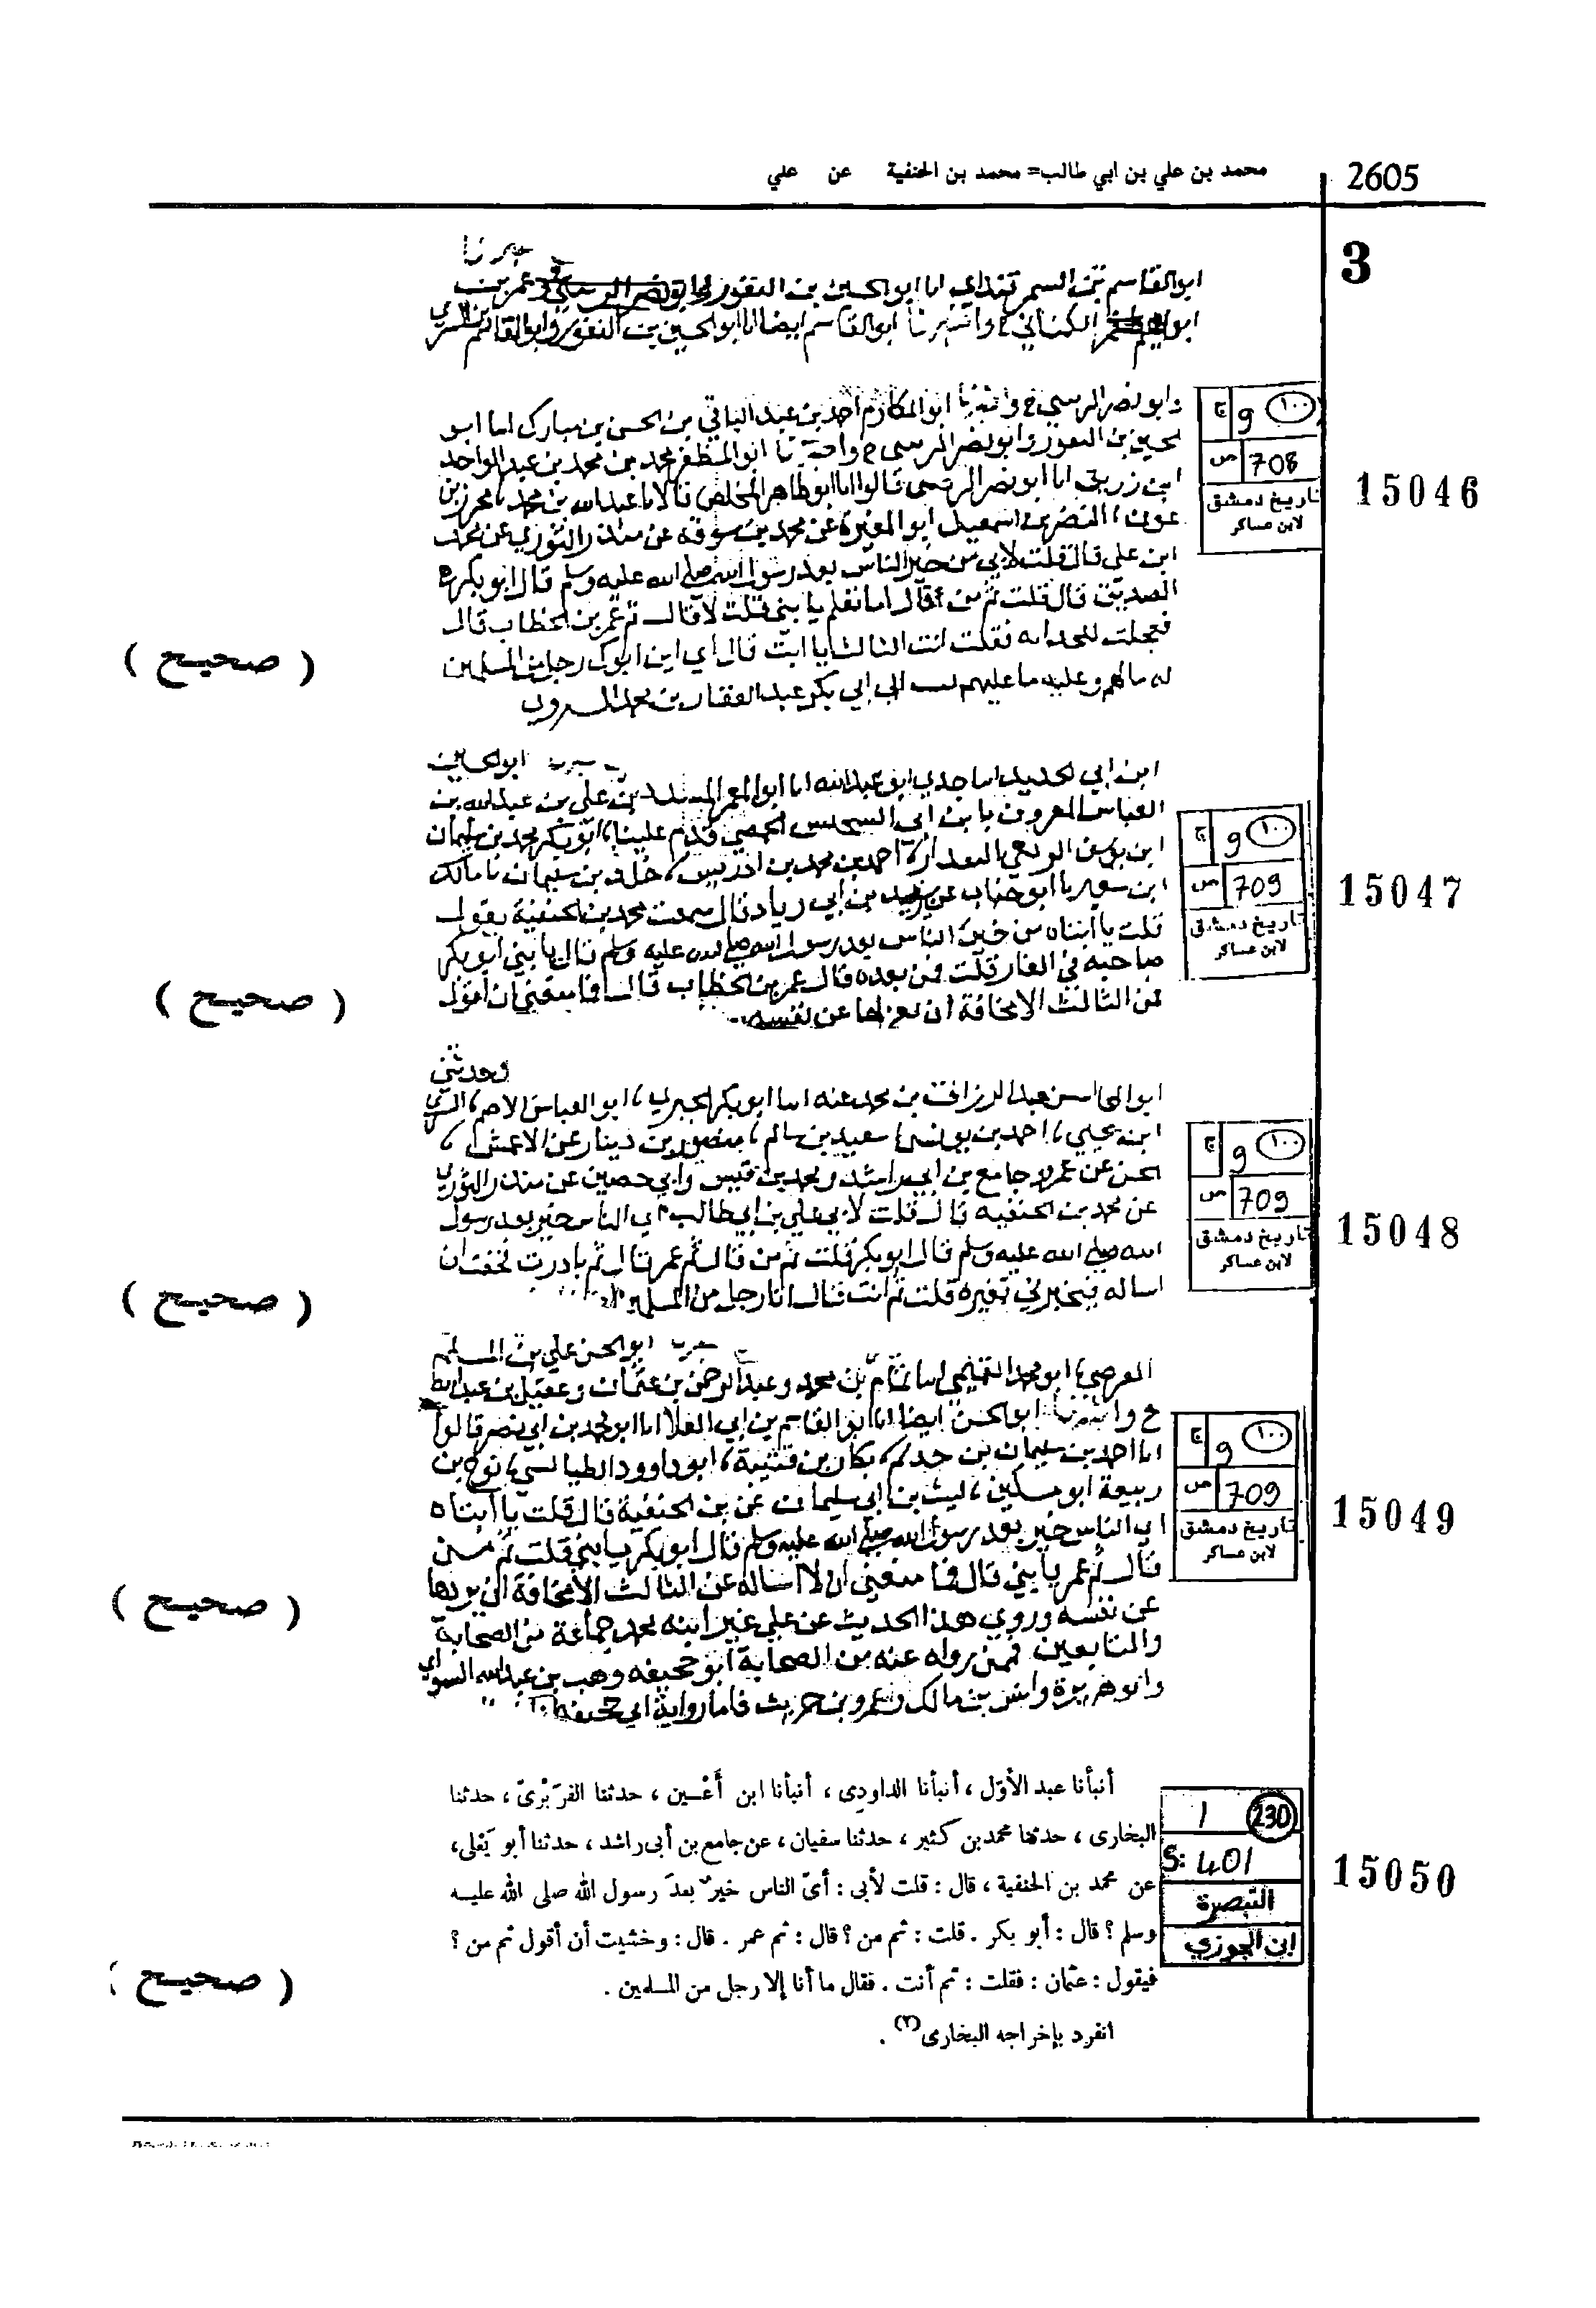 2605
محمد بن علي بن ابي طالب= محمد بن الحنفية عن علي
3
ابو القاسم بن السمرقندي انا ابو الحسين بن النقور
الكناني ح وأخبرنا ابو القاسم ايضا انا ابو الحسين بن النقور وابو القاسم بن البسري
وابو نصر الزينبي ح وأخبرنا ابو المكارم احمد بن عبد الباقي بن الحسن بن مبارك انا ابو
الحسين بن النقور وابو نصر الزينبي ح وأخبرنا ابو المظفر محمد بن محمد بن عبد الواحد
ابن زريق انا ابو نصر الزينبي قالوا انا ابو طاهر المخلص قالا نا عبد الله بن محمد نا محرز بن
عون نا النضر بن اسمعيل ابو المغيرة عن محمد بن سوقة عن منذر الثوري عن محمد
ابن علي قال قلت لابي من خير الناس بعد رسول الله صلى الله عليه وسلم قال ابو بكر
الصديق قال قلت ثم من قال اما تعلم يا بني قلت لا قال ثم عمر بن الخطاب قال
فقلت انت الثالث يا ابت قال اي ابوك رجل من المسلمين
له ما لهم وعليه ما عليهم الى ابي بكر عبد الغفار بن محمد
١٠٠ و ج
708 ص
تاريخ دمشق
لابن عساكر
15046
( صحيح )
ابو الحسين
ابن ابي الحديد انا جدي ابو عبد الله انا ابو المعمر المسدد بن علي بن عبد الله بن
العباس المعروف بابن ابي السجيس الحمصي قدم علينا نا ابو بكر محمد بن سليمان
ابن يوسف الربعي احمد بن محمد بن ادريس نا خلف بن سليمان نا مالك
ابن سعير نا ابو جناب عن بن ابي زياد قال سمعت محمد بن الحنفية يقول
قلت يا ابتاه من خير الناس بعد رسول الله صلى الله عليه وسلم قال يا بني ابو بكر
صاحبه في الغار قلت فمن بعده قال عمر بن الخطاب قال فما منعني ان اقول
فمن الثالث الا مخافة ان يعزلها عن نفسه
١٠٠ و ج
709 ص
تاريخ دمشق
لابن عساكر
15047
( صحيح )
وحدثني
ابو المحاسن عبد الرزاق بن محمد عنه انا ابو بكر الحيري نا ابو العباس الاصم نا السري
ابن يحيى نا احمد بن يونس نا سعيد بن سالم نا منصور بن دينار عن الاعمش
جامع بن ابي راشد ومحمد بن قيس وابي حصين عن منذر الثوري
عن محمد بن الحنفية قال قلت لابي علي بن ابي طالب اي الناس خير بعد رسول
الله صلى الله عليه وسلم قال ابو بكر قلت ثم من قال ثم عمر قال ثم بادرت فخفت ان
اساله فيخبرني بغيره قلت ثم انت قال انا رجل من المسلمين
١٠٠ و ج
709 ص
تاريخ دمشق
لابن عساكر
15048
( صحيح )
ابو الحسن علي بن المسلم
الفرضي نا ابو محمد التميمي انا تمام بن محمد وعبد الرحمن بن عثمان وعقيل بن عبد الله
ح وأخبرنا ابو الحسن ايضا انا ابو القاسم بن ابي العلا انا ابو محمد بن ابي نصر قالوا
انا احمد بن سليمان بن حذلم نا بكار بن قتيبة نا ابو داوود الطيالسي نا نوح بن
ربيعة ابو مسكين نا ليث بن ابي سليمان عن بن الحنفية قال قلت يا ابتاه
اي الناس خير بعد رسول الله صلى الله عليه وسلم قال ابو بكر يا بني قلت ثم من
قال ثم عمر يا بني قال فما منعني ان لا اساله عن الثالث الا مخافة ان يزيلها
عن نفسه وروي هذا الحديث عن علي غير ابنه محمد جماعة من الصحابة
والتابعين فممن رواه عنه من الصحابة ابو جحيفه وهب بن عبد الله السوائي
وابو هريرة وانس بن مالك وعمرو بن حريث فاما رواية ابي جحيفه
١٠٠ و ج
709 ص
تاريخ دمشق
لابن عساكر
15049
( صحيح )
أنبأنا عبد الأوّل ، أنبأنا الداودى ، أنبأنا ابن أَعْين ، حدثنا الفَرَبْرىّ ، حدثنا
البخارى ، حدثنا محمد بن كثير ، حدثنا سفيان ، عن جامع بن أبى راشد ، حدثنا أبو يَعْلى ،
عن محمد بن الحنفية ، قال : قلت لأبى : أىّ الناس خيرٌ بعدَ رسول الله صلى الله عليه
وسلم ؟ قال : أبو بكر . قلت : ثم من ؟ قال : ثم عمر . قال : وخشيت أن أقول ثم من ؟
فيقول : عثمان : فقلت : ثم أنت . فقال ما أنا إلا رجل من المسلمين .
انفرد بإخراجه البخارى (٢) .
230 1
S: 401
التبصرة
ابن الجوزي
15050
( صحيح )